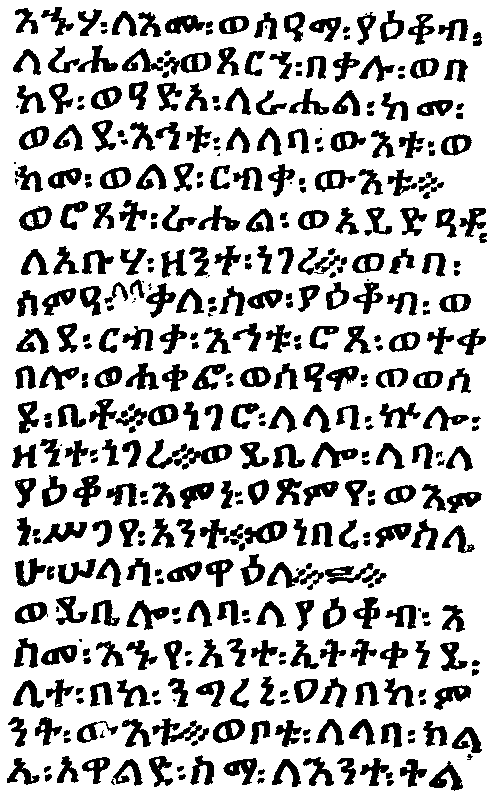 እኁሃ፡ለእሙ፡ወሰዓማ፡ያዕቆብ፡
ለራሔል፨ወጸርኀ፡በቃሉ፡ወበ
ከዩ፡ወዓድአ፡ለራሔል፡ከመ፡
ወልደ፡እኅቱ፡ለላባ፡ውእቱ፡ወ
ከመ፡ወልደ፡ርብቃ፡ውእቱ፨
ወሮጸት፡ራሔል፡ወአይድዓቶ፡
ለአቡሃ፡ዘንተ፡ነገረ፨ወሶበ፡
ሰምዓ፡ላባ፡ቃለ፡ስመ፡ያዕቆብ፡ወ
ልደ፡ርብቃ፡እኅቱ፡ሮጸ፡ወተቀ
በሎ፡ወሐቀፎ፡ወሰዓሞ፡ወወሰ
ዶ፡ቤቶ፨ወነገሮ፡ለላባ፡ኵሎ፡
ዘንተ፡ነገረ፨ወይቤሎ፡ላባ፡ለ
ያዕቆብ፡እምነ፡ዐጽምየ፡ወእም
ነ፡ሥጋየ፡አንተ፨ወነበረ፡ምስሌ
ሁ፡ሠላሳ፡መዋዕለ፨
ወይቤሎ፡ላባ፡ለያዕቆብ፡እ
ስመ፡እኁየ፡አንተ፡ኢትትቀነይ፡
ሊተ፡በከ፡ንግረኒ፡ዐስበከ፡ም
ንት፡ውእቱ፨ወቦቱ፡ለላባ፡ክል
ኤ፡አዋልድ፡ስማ፡ለእንተ፡ትል